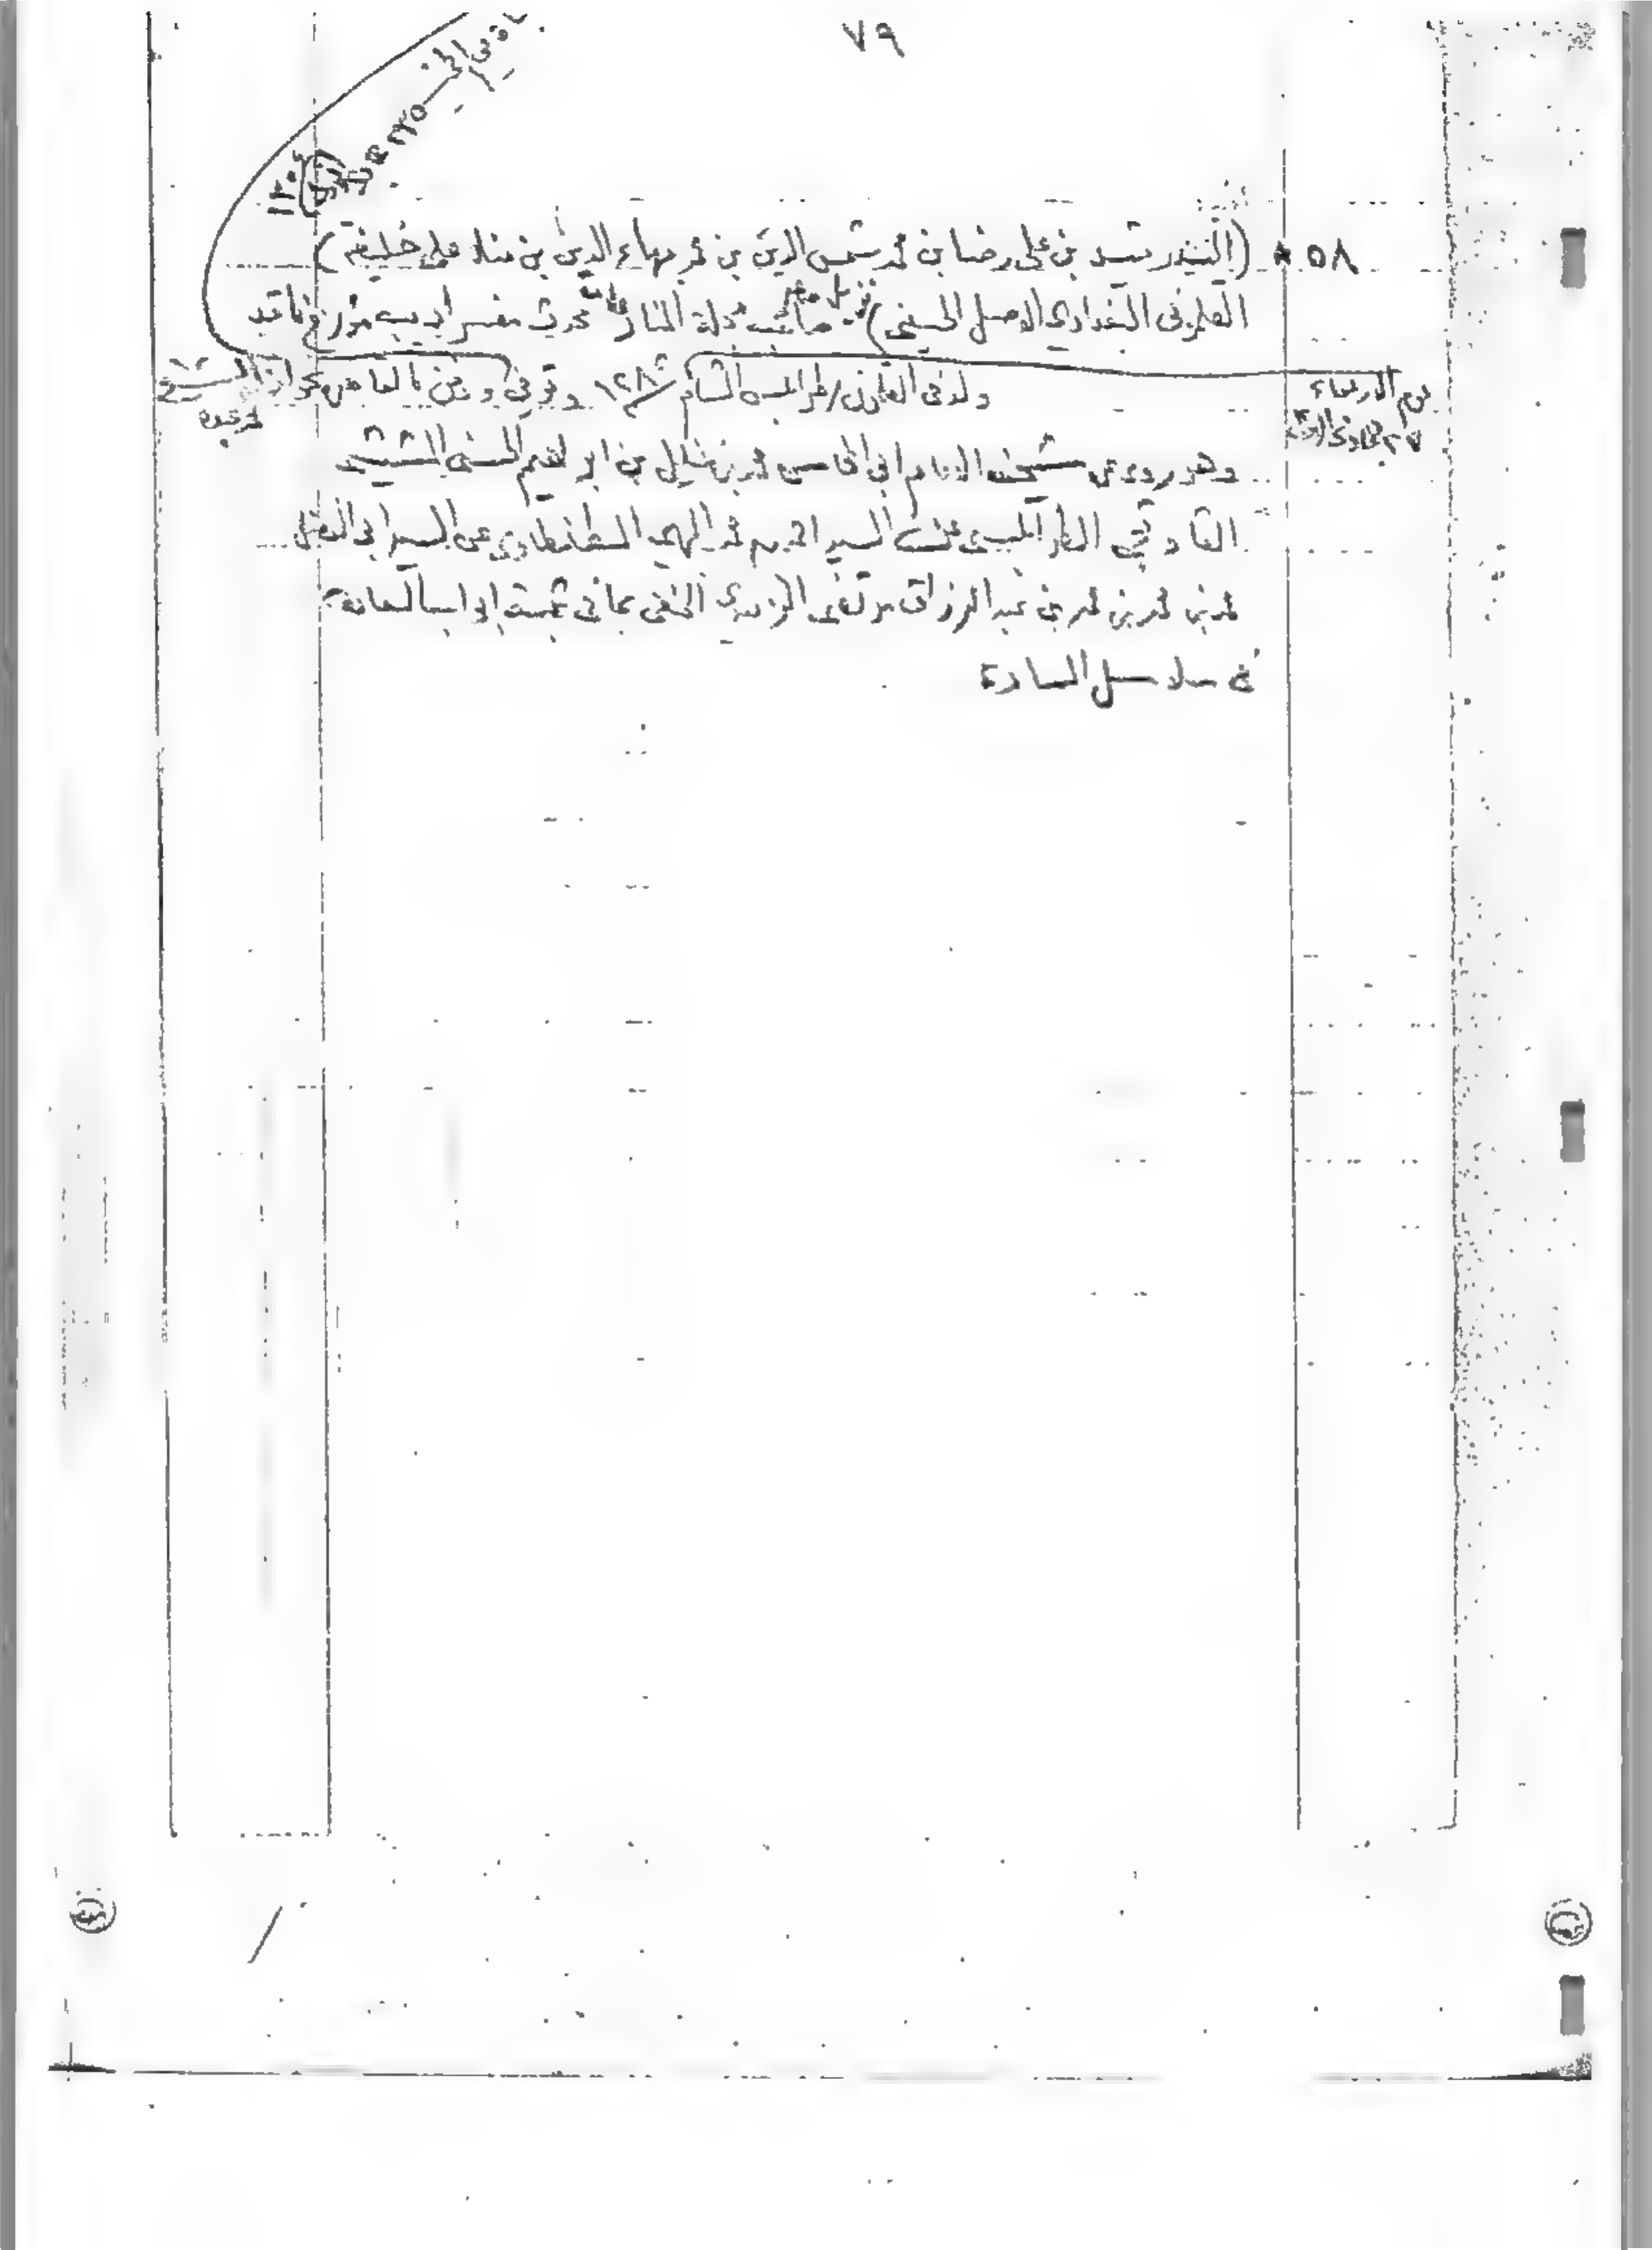 ٧٩
٥٨ * (السيد رشيد بن علي رضا بن محمد شمس الدين بن محمد بهاء الدين بن منلا علي خليفة)
القلموني البغدادي الاصل الحسيني) نزيل مصر صاحب مجلة المنار عالم محدث مفسر اديب مؤرخ ناقد
ولد في القلمون/طرابلس الشام ١٢٨٢ وتوفي ودفن بالقاهرة بجوار الشيخ
محمد عبده
يوم الاربعاء
وهو يروي عن شيخه الامام ابي المحاسن محمد بن خليل بن ابراهيم الحسني المشيشي
القاوقجي الطرابلسي عن السيد محمد البهي الطنطاوي عن السيد ابي الفيض
محمد بن محمد بن محمد بن عبد الرزاق مرتضى الزبيدي الحنفي بما في ثبته
في سلاسل السادة